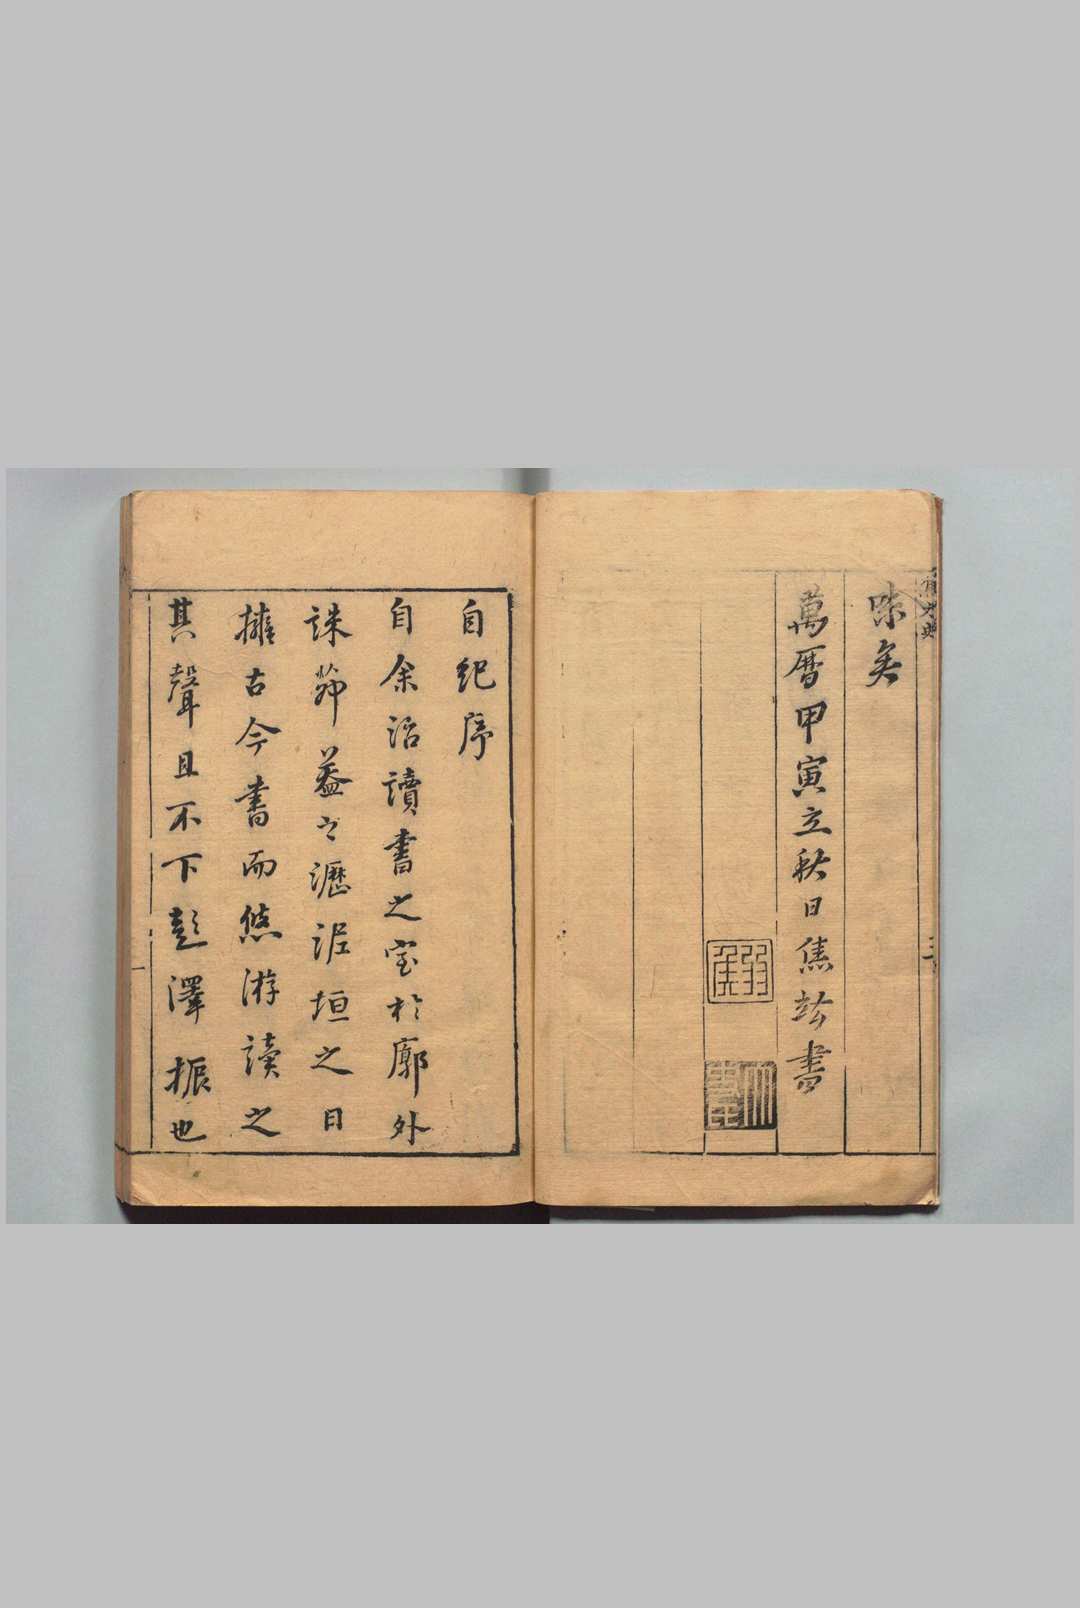 味矣
萬暦甲寅立秋日焦竑書
弱侯
自紀序
自余治讀書之室於廓外
誅茆葢之瀝泥垣之日
擁古今書而悠游讀之
其聲且不下彭澤振也